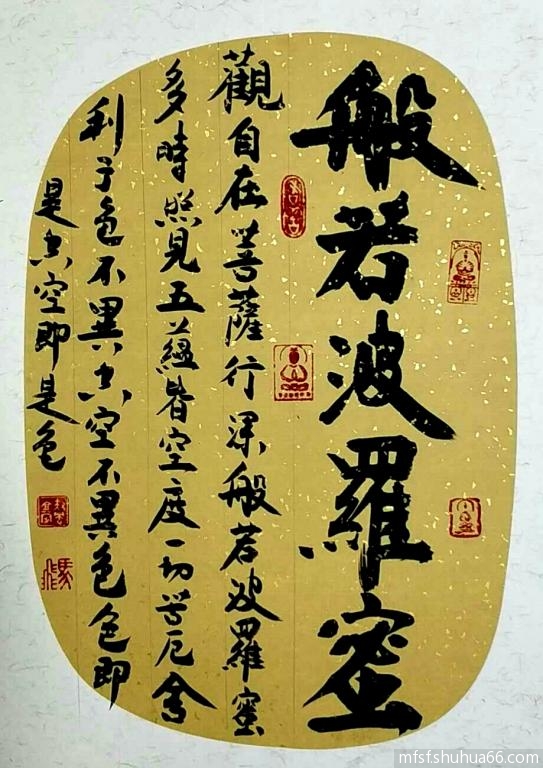 般若波羅蜜
觀自在菩薩行深般若波羅蜜
多時照見五蘊皆空度一切苦厄舍
利子色不異空空不異色色即
是空空即是色
mfsf.shuhua66.com